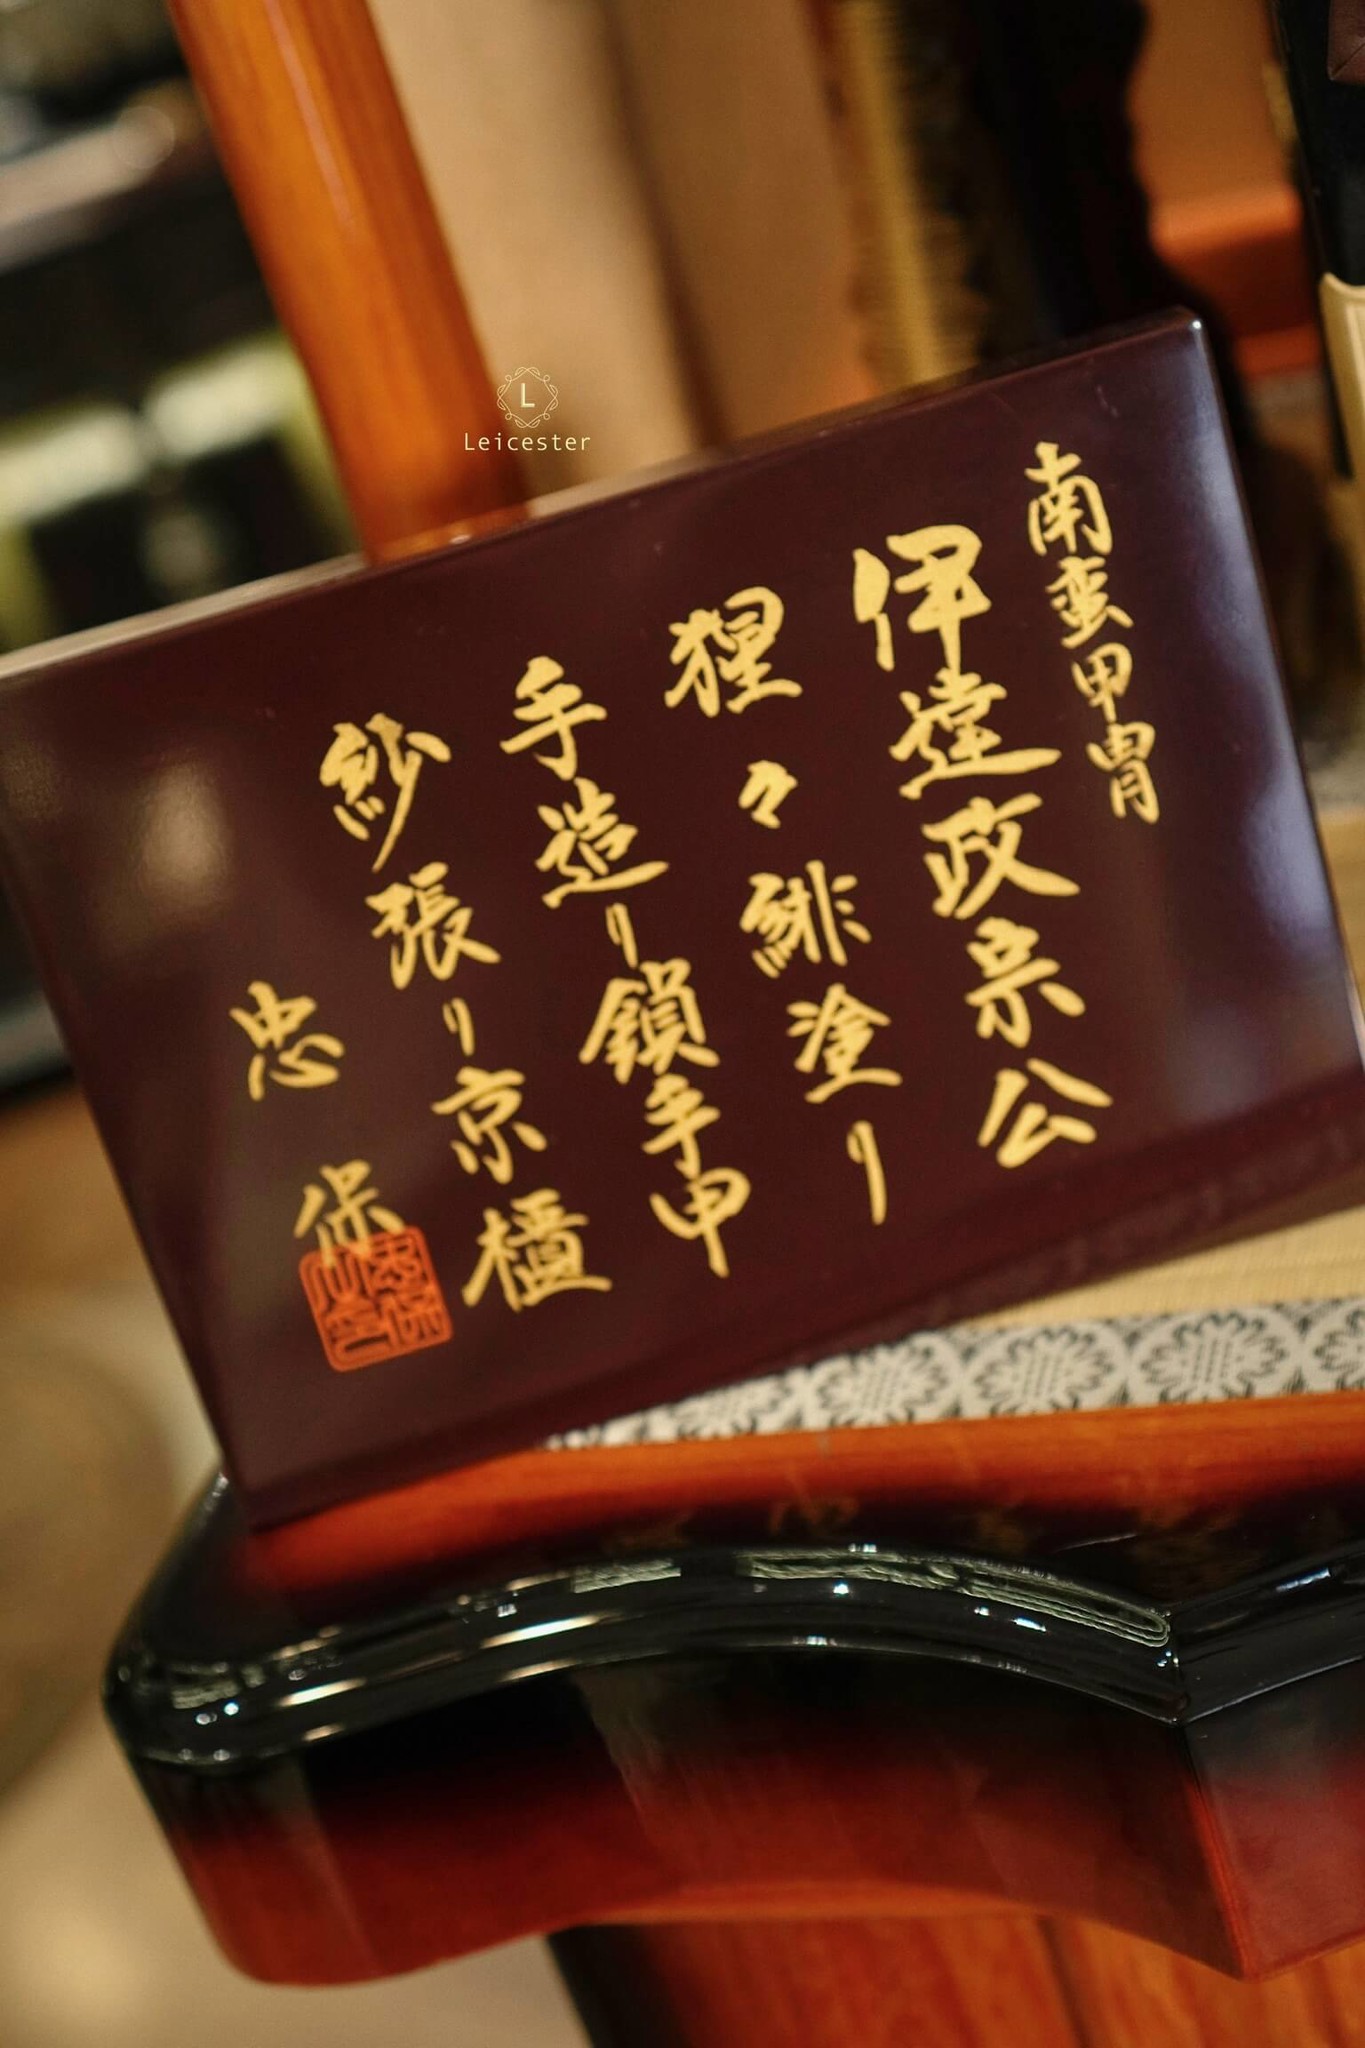 南蛮甲冑
伊達政宗公
猩々緋塗り
手造り鎖手甲
紗張り京櫃
忠保
L
Leicester